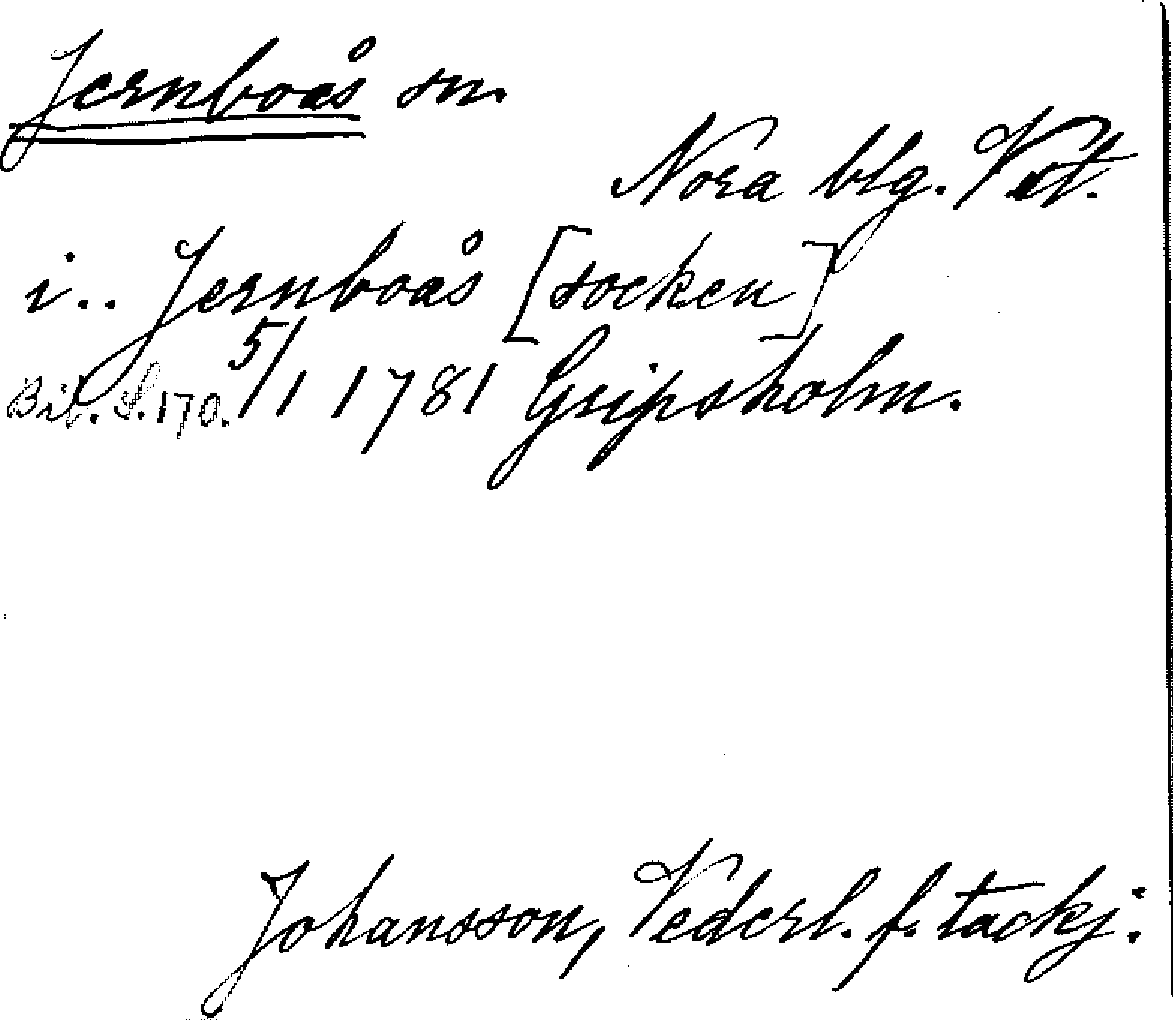 Jernboås sn.
Nora blg. Vst.
i.. Jernboås [socken]
Bil. S. 170. 5/1 1781 Gripsholm.
Johansson, Vederl. f. tackj.